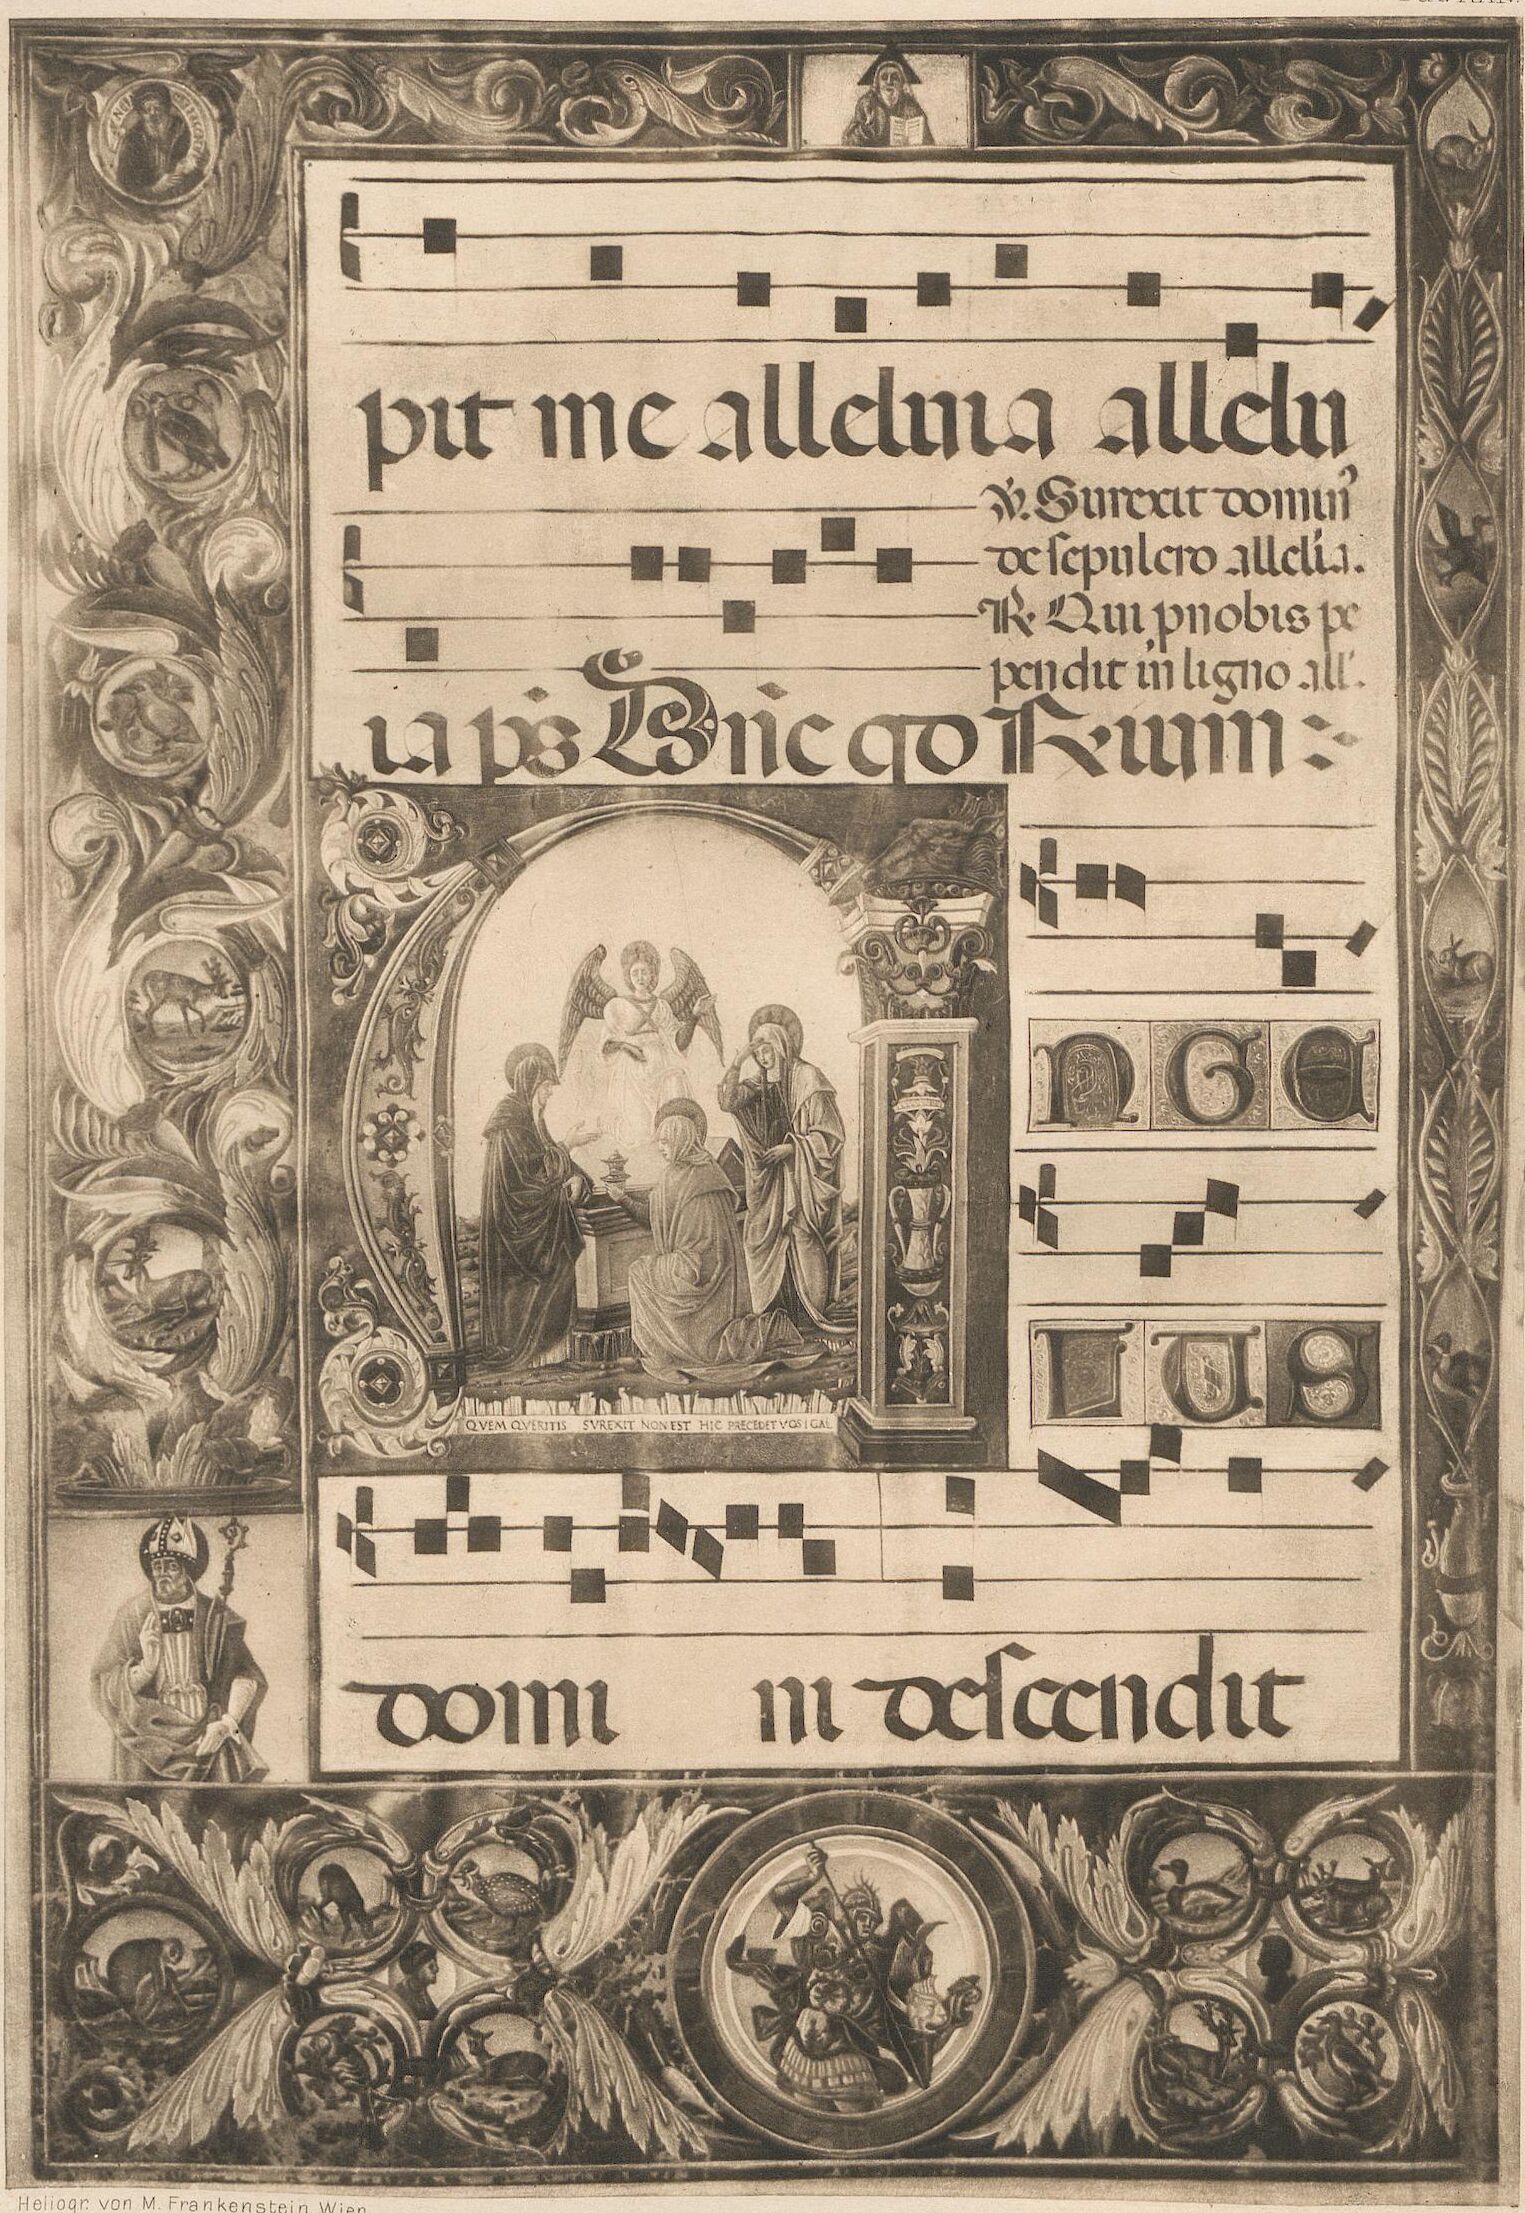 pit me alleluia allelu
℣. Surexit domin⁹
de sepulcro allel'ia.
℟. Qui p nobis pe
pendit in ligno all'.
ia ps Bn̄c qo ℟num :~
NGE
LUS
QVEM QVERITIS SVREXIT NON EST HIC PRECEDET VOS I GAL
domi ni descendit
Heliogr. von M. Frankenstein, Wien